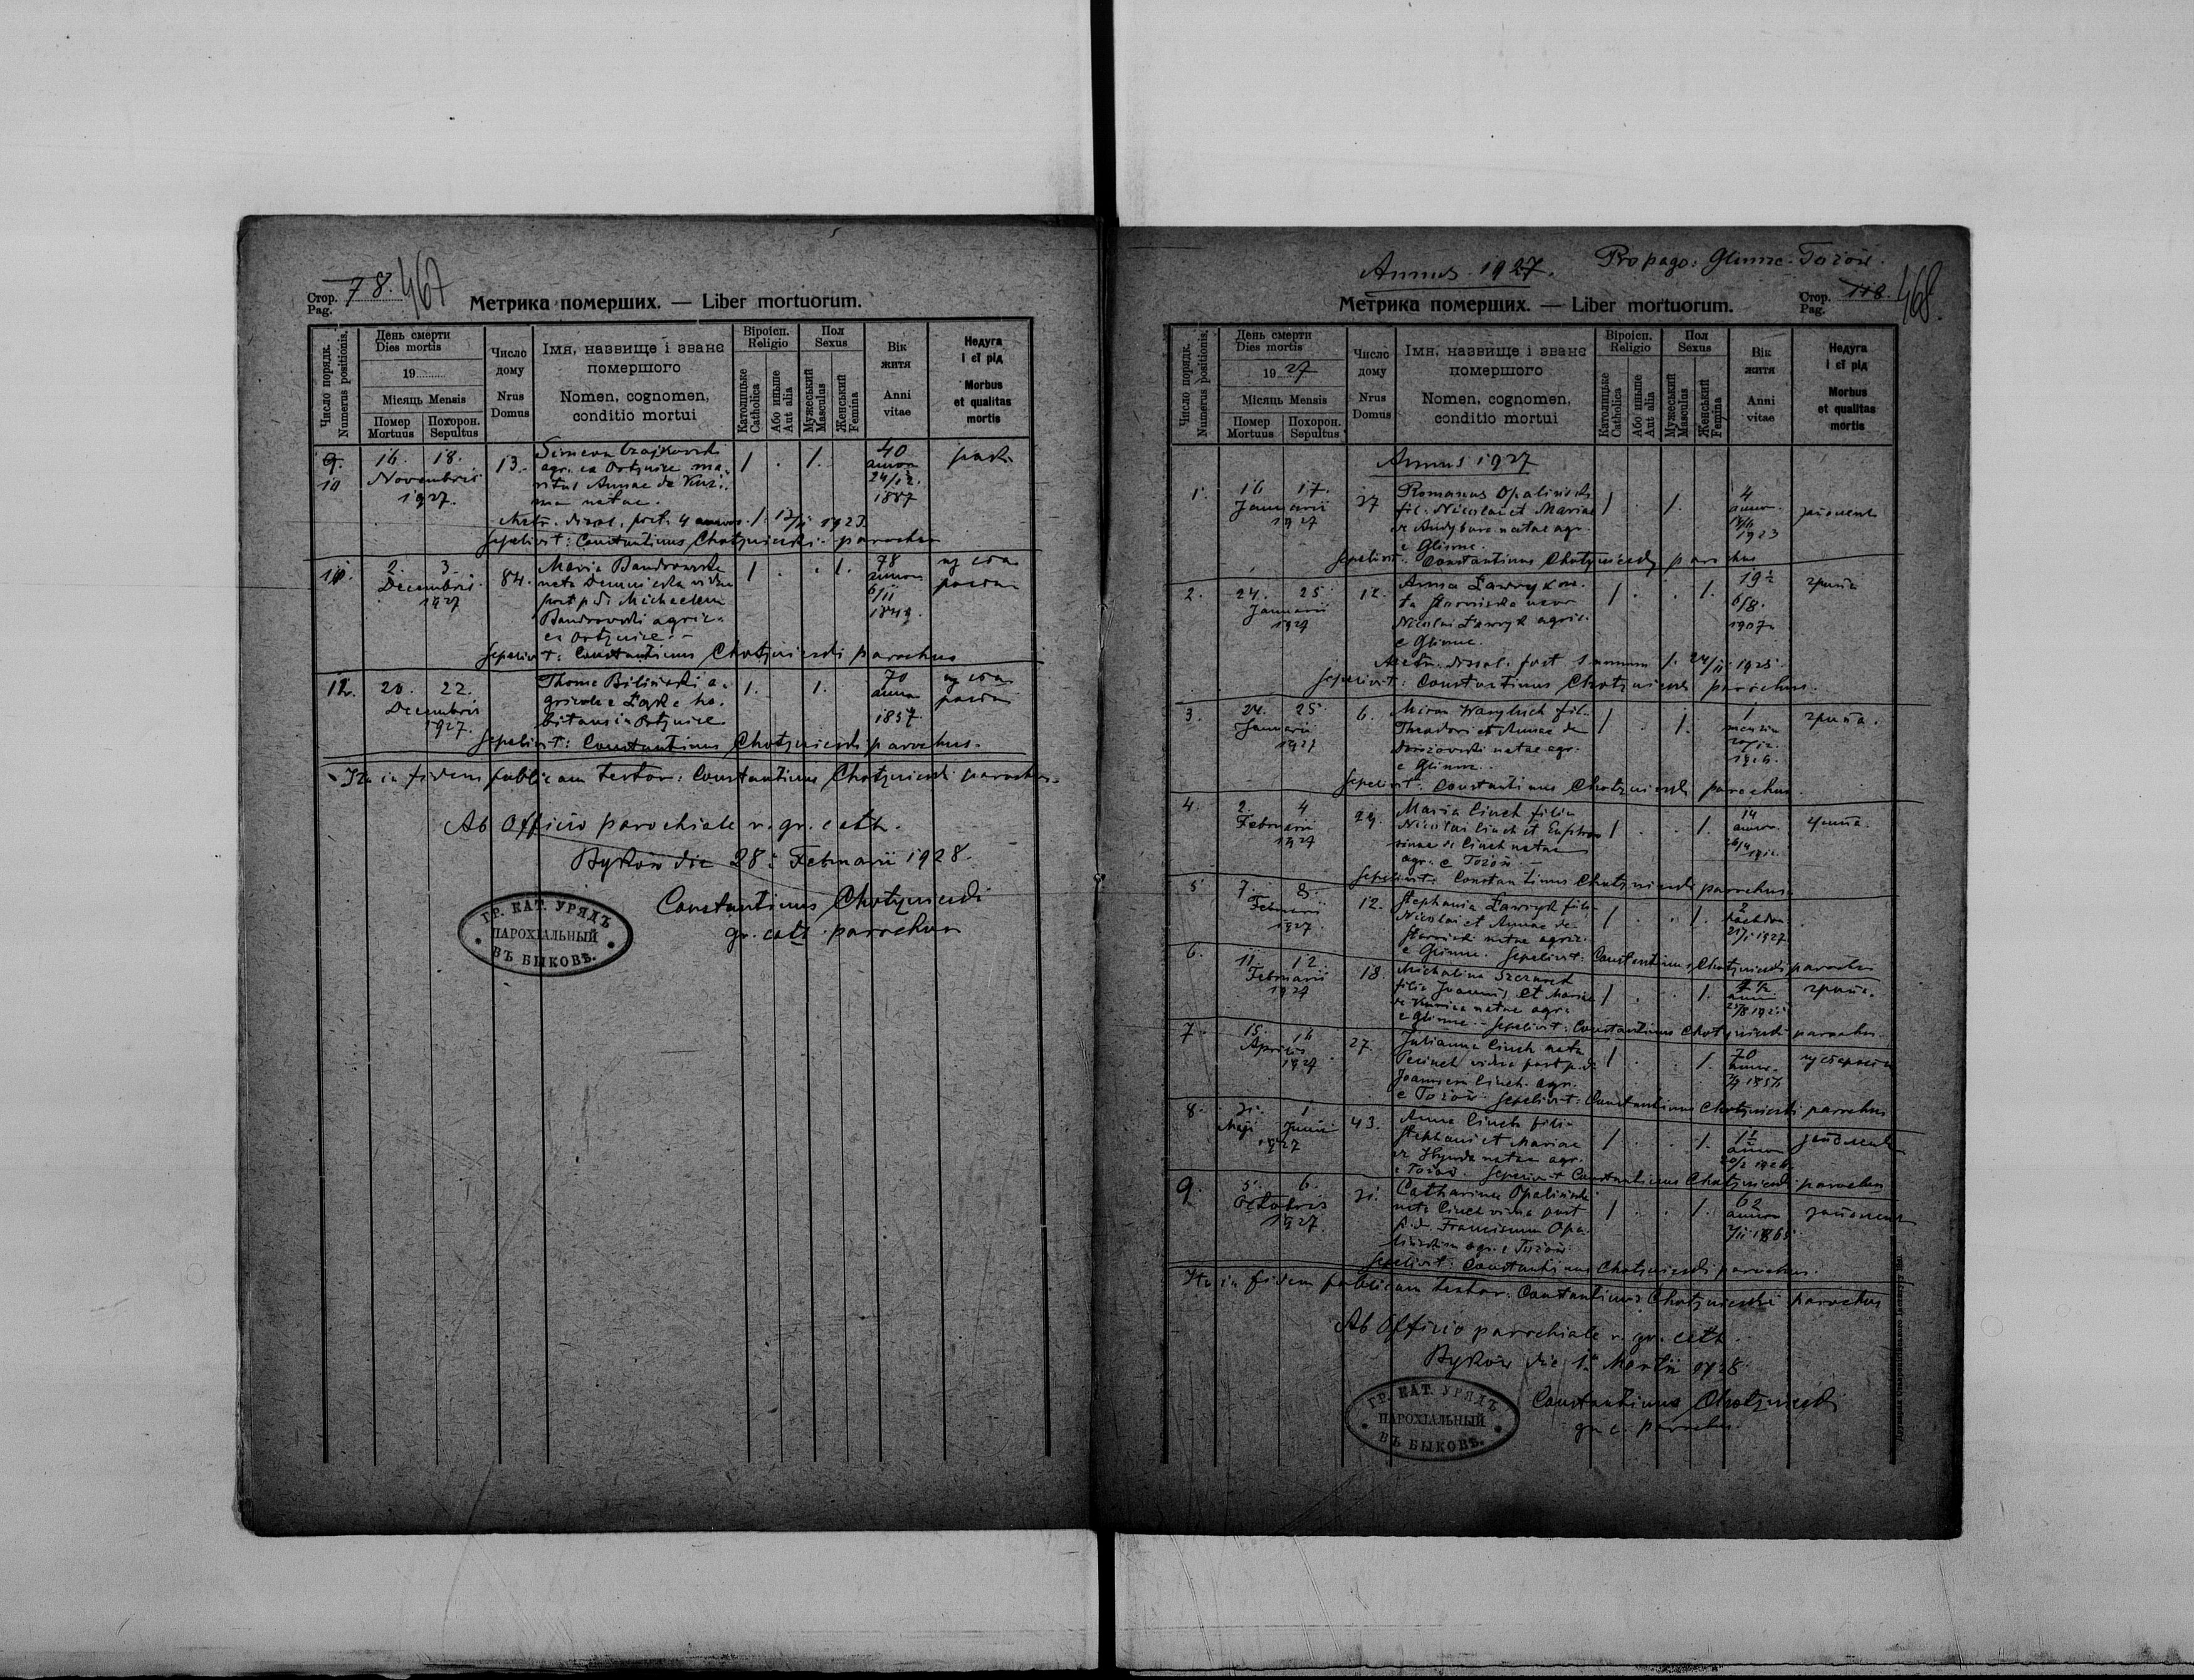 Стор. Pag. 78. 467
Метрика померших. — Liber mortuorum.
Число порядк. Numerus positionis.
День смерти
Dies mortis
19
Місяць Mensis
Помер Mortuus
Похорон. Sepultus
Число дому
Nrus Domus
Імя, назвище і званє
помершого
Nomen, cognomen,
conditio mortui
Віроісп. Religio
Католицьке Catholica
Або иньше Aut alia
Пол Sexus
Мужеський Masculus
Женський Femina
Вік житя
Anni vitae
Недуга і єї рід
Morbus et qualitas mortis
9. 10
16. 18.
Novembris
1927.
13.
agr. ex Ortynice ma-
ritus Annae de
natae.
1. . 1.
40
annor.
24/12.
1887
Matr. dissol. post. 4 annos 1923.
Sepelivit: Constantinus Chotyniecki parochus
2. 3.
Decembris
1927
84.
Maria Bandrowska
nata vidua
post p. d. Michaelem
Bandrowski agric.
ex Ortynice.
1. . . 1.
78
annor.
6/11
1849.
Sepelivit: Constantinus Chotyniecki parochus
12.
20. 22.
Decembris
1927.
Thoma Biliński a-
gricola e Łąka ha-
bitans in Ortynice
1. 1.
70
annor.
1857
Sepelivit: Constantinus Chotyniecki parochus.
Ita in fidem publicam testor: Constantinus Chotyniecki parochus.
Ab Officio parochiale r. gr. cath.
Byków die 28. Februarii 1928.
Constantinus Chotyniecki
gr. cath. parochus
ГР. КАТ. УРЯДЪ
ПАРОХІАЛЬНЫЙ
ВЪ БЫКОВѢ.
Annus 1927. Propago: Glinne-Tożów.
Метрика померших. — Liber mortuorum.
Стор. Pag. 118. 468.
Число порядк. Numerus positionis.
День смерти
Dies mortis
1927
Місяць Mensis
Помер Mortuus
Похорон. Sepultus
Число дому
Nrus Domus
Імя, назвище і званє
помершого
Nomen, cognomen,
conditio mortui
Віроісп. Religio
Католицьке Catholica
Або иньше Aut alia
Пол Sexus
Мужеський Masculus
Женський Femina
Вік житя
Anni vitae
Недуга і єї рід
Morbus et qualitas mortis
Annus 1927
1.
16 17.
Januarii
1927
37
Romanus Opaliński
fil. Nicolai et Mariae
de natae agr.
e Glinne.
1 . 1.
4
annor.
1923
Sepelivit: Constantinus Chotyniecki parochus
2.
24. 25.
Januarii
1927
12.
Anna Ławryk na-
ta uxor
Nicolai Ławryk agric.
e Glinne.
1 . . 1.
19½
6/8.
1907
грипа
Matr. dissol. post 1 annum 1925.
Sepelivit: Constantinus Chotyniecki parochus.
3.
24. 25.
Januarii
1927
6.
Miron Wasyluch fil.
Theodori et Annae de
natae agr.
e Glinne.
1 . 1.
1
грипа.
Sepelivit: Constantinus Chotyniecki parochus.
4.
2. 4
Februarii
1927
29.
Maria Cinch filia
Nicolai Cinch et Euphro-
sinae de Cinch natae
agr. e Tożów.
1 . . 1.
14
annor.
грипа.
Sepelivit: Constantinus Chotyniecki parochus.
5
7. 8.
Februarii
1927.
12.
Stephania Ławryk fil.
Nicolai et Annae de
natae agric.
e Glinne. Sepelivit: Constantinus Chotyniecki parochus
1 . . 1.
2
1927
6.
11. 12.
Februarii
1927
18.
Michalina
filia Joannis et Mariae
de natae agr.
e Glinne. Sepelivit: Constantinus Chotyniecki parochus.
1 . . 1.
грипа.
7.
15. 16
Aprilis
1927
27.
Julianna Cinch nata
vidua post p. d.
Joannem Cinch agr.
e Tożów. Sepelivit: Constantinus Chotyniecki parochus
1 . . 1.
70
annor.
8.
31. 1
Maji Junii
1927
43.
Anna Cinch filia
Stephani et Mariae
de natae agr.
e Tożów. Sepelivit Constantinus Chotyniecki parochus
1 . . 1.
1½
9.
5. 6.
Octobris
1927.
31.
Catharina Opalińska
nata Cinch vidua post
p. d. Franciscum Opa-
liński agr. e Tożów
1 . . 1.
62
annor
1865
Sepelivit: Constantinus Chotyniecki parochus.
Ita in fidem publicam testor: Constantinus Chotyniecki parochus
Ab Officio parochiale r. gr. cath.
Byków die 1. Martii 1928
Constantinus Chotyniecki
gr. c. parochus.
ГР. КАТ. УРЯДЪ
ПАРОХІАЛЬНЫЙ
ВЪ БЫКОВѢ.